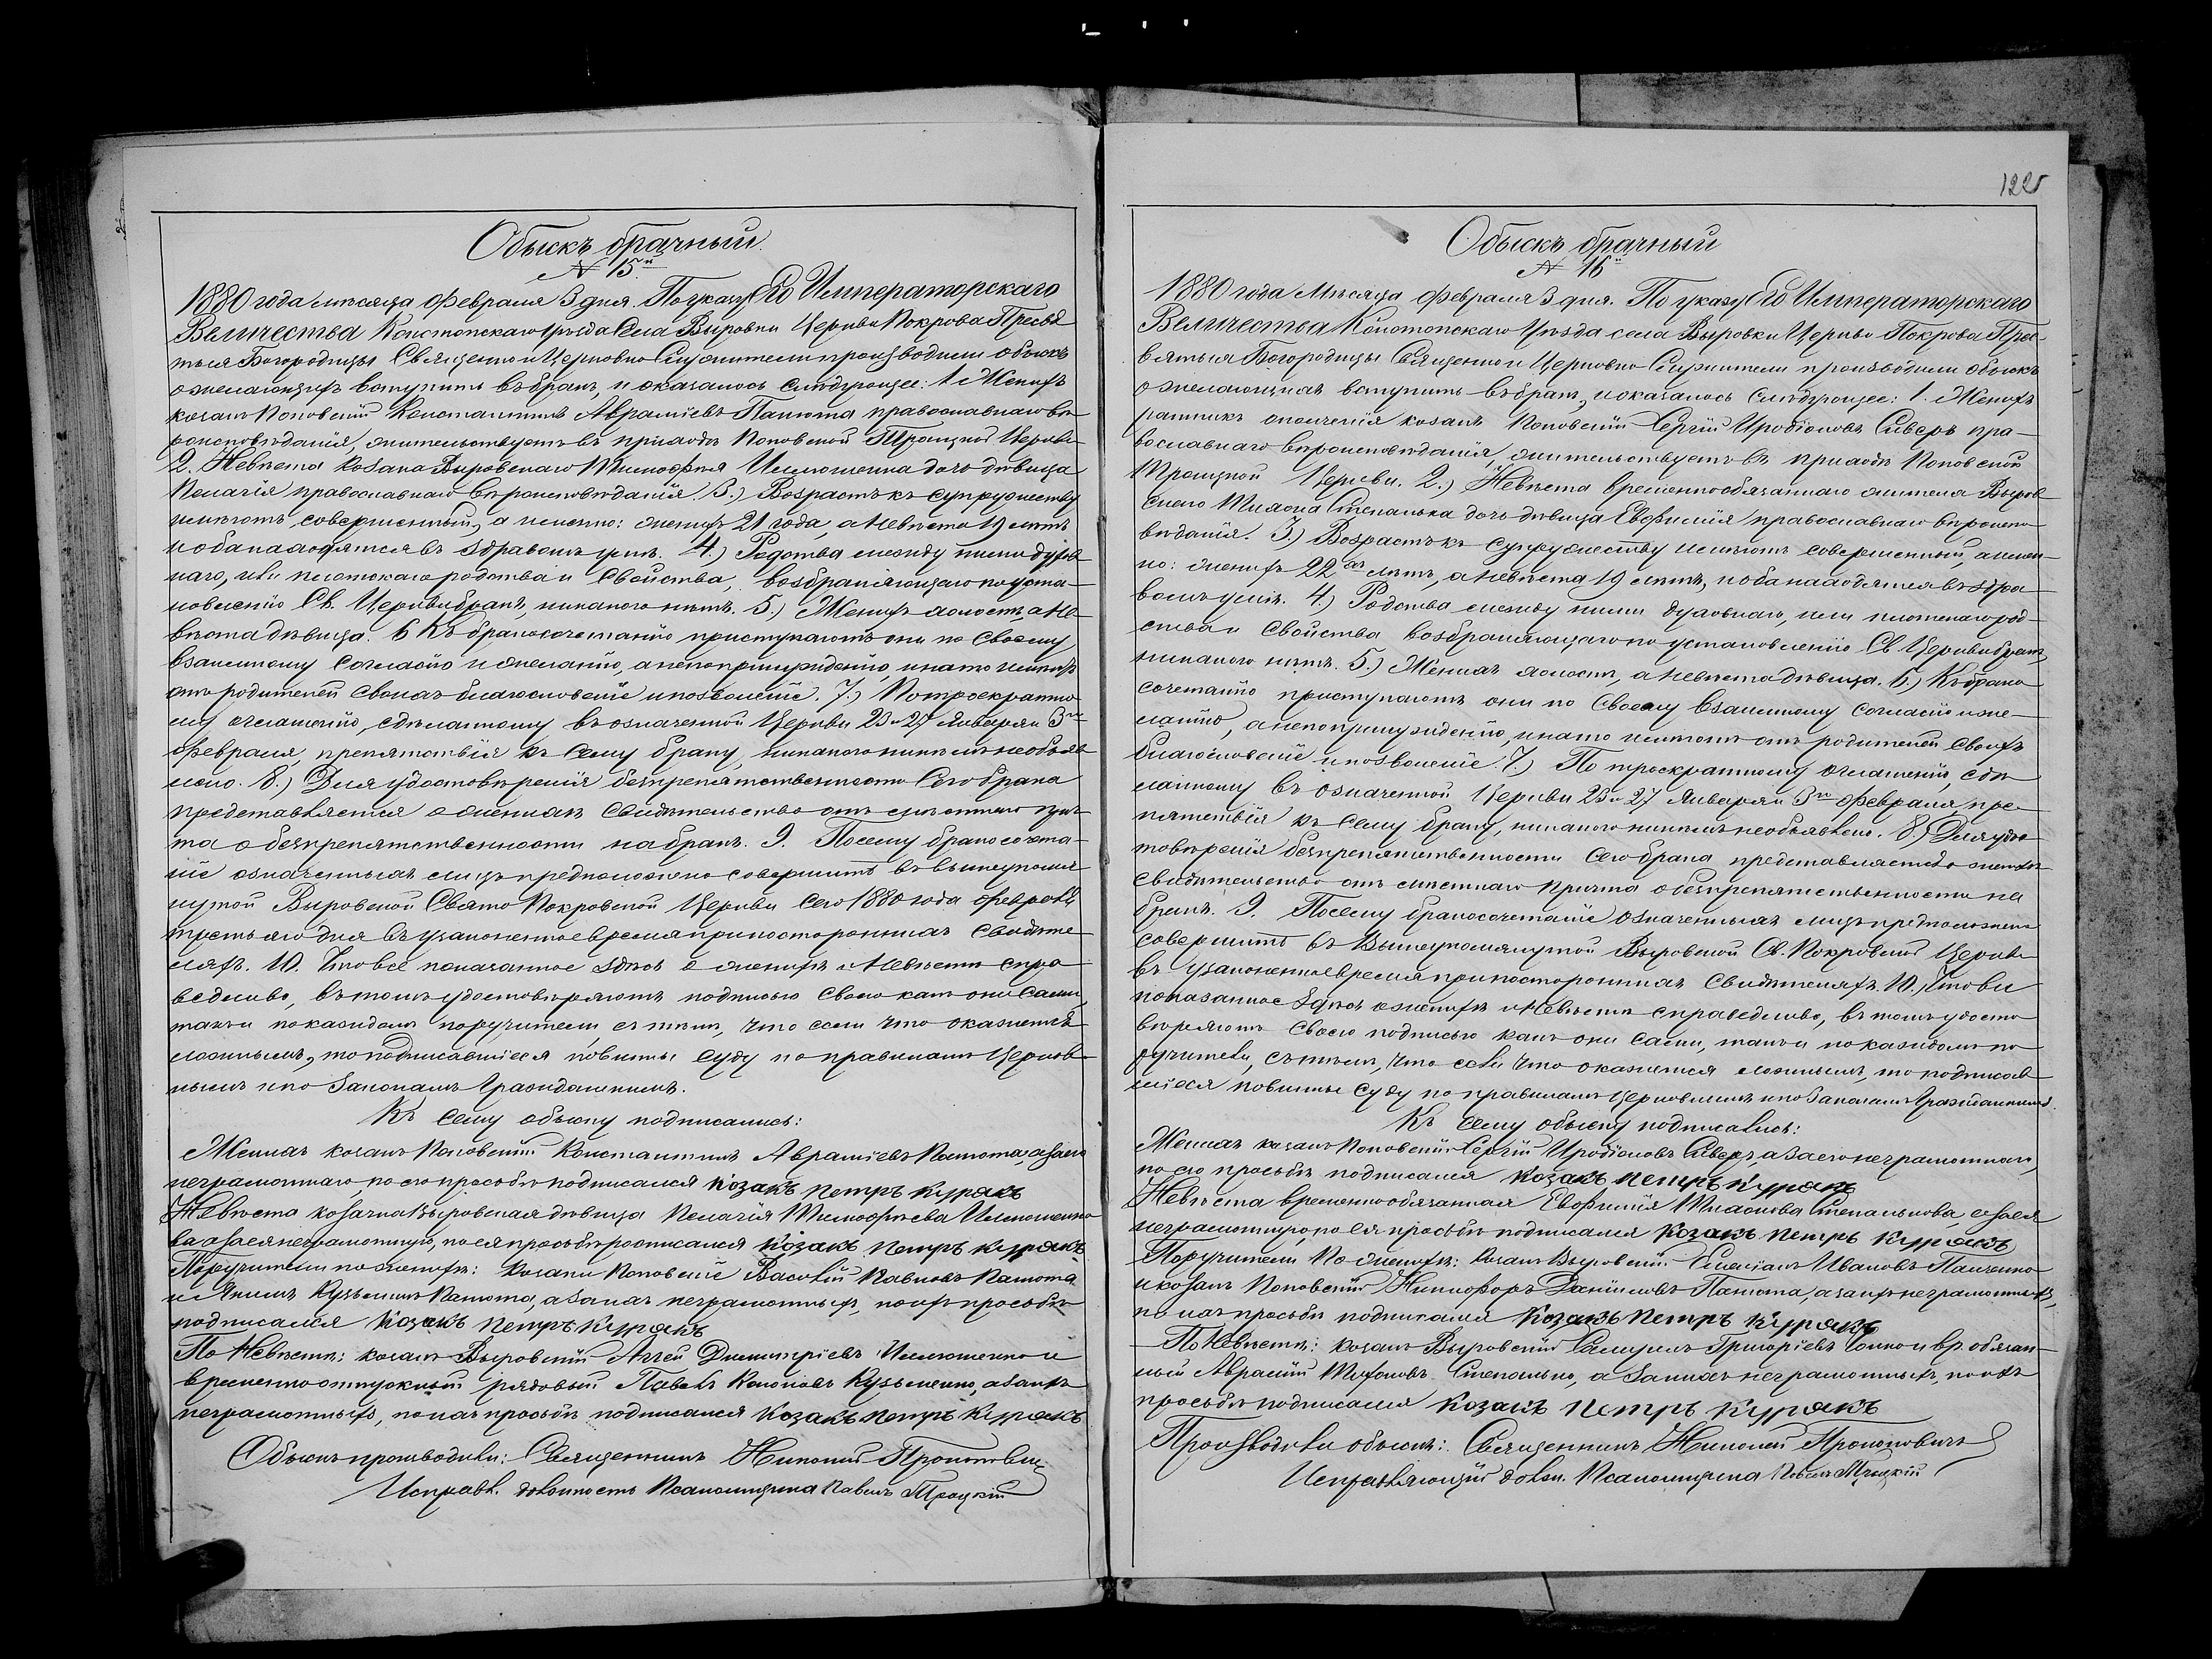 Обыскъ брачный.
№ 15й
1880 года мѣсяца Февраля 3 дня. По указу Его Императорскаго
Величества Конотопскаго Уѣзда Села Выровки Церкви Покрова Пресвя
тыя Богородицы Священно и Церковно Служители производили обыскъ
о желающихъ вступить въ бракъ, и оказалось слѣдующее: 1. Женихъ
козакъ Поповскій Константинъ Авраміевъ Панюта православнаго вѣ
роисповѣданія, жительствуетъ въ приходѣ Поповской Троицкой Церкви
2. Невѣста козака Выровскаго Тимофея дочь дѣвица
Пелагія православнаго вѣроисповѣданія. 3.) Возрастъ къ супружеству
имѣютъ совершенный, а именно: женихъ 21 года, а невѣста 19 лѣтъ
и оба находятся въ здравомъ умѣ. 4.) Родства между ними духов
наго, или плотскаго родства и Свойства, возбраняющаго по уста-
новленію Св. Церкви бракъ, никакого нѣтъ. 5.) Женихъ холостъ, а не-
вѣста дѣвица. 6 Къ бракосочетанію приступаютъ они по своему
взаимному согласію и желанію, а не по принужденію, и на то имѣютъ
отъ родителей своихъ благословеніе и позволеніе. 7.) По троекратно-
му оглашенію, сдѣланному въ означенной Церкви 23 и 27 Января и 3го
Февраля, препятствія къ сему браку, никакого никѣмъ не объяв
лено. 8.) Для удостовѣренія безпрепятственности сего брака
представляется о женихѣ свидѣтельство отъ мѣстнаго прич
та о безпрепятственности на бракъ. 9. Посему бракосочета-
ніе означенныхъ лицъ предположено совершить въ вышеупомя
нутой Выровской Свято Покровской Церкви сего 1880 года Февраля
третьяго дня въ узаконенное время при постороннихъ свидѣте
ляхъ. 10. Что все показанное здѣсь о женихѣ и невѣстѣ спра
ведливо, въ томъ удостовѣряютъ подписью своею какъ они сами,
такъ и по каждомъ поручители, съ тѣмъ, что если что окажется
ложнымъ, то подписавшіеся повинны суду по правиламъ церков-
нымъ и по законамъ гражданскимъ.
Къ сему обыску подписались:
Женихъ козакъ Поповскій Константинъ Авраміевъ Панюта, а за его
неграмотнаго, по его просьбѣ подписался козакъ Петръ Курякъ
Невѣста козачка Выровская дѣвица Пелагія Тимофѣева
ва а за ея неграмотную, по ея просьбѣ росписался козакъ Петръ Курякъ
Поручители по женихѣ: козаки Поповскіе Василій Павловъ Панюта
и Якимъ Кузьминъ Панюта, а за ихъ неграмотныхъ, по ихъ просьбѣ
подписался козакъ Петръ Курякъ
По Невѣстѣ: козакъ Выровскій Дмитріевъ и
временноотпускный рядовый Павелъ Кононовъ Кузьменко, а за ихъ
неграмотныхъ, по ихъ просьбѣ подписался козакъ Петръ Курякъ
Обыскъ производили: Священникъ Николай Прокоповичъ
Исправл. должность Псаломщика Павелъ Троцкій
122
Обыскъ брачный
№ 16й
1880 года Мѣсяца Февраля 3 дня. По указу Его Императорскаго
Величества Конотопскаго Уѣзда села Выровки Церкви Покрова Прес-
вятыя Богородицы Священно и Церковно Служители производили обыскъ
о желающихъ вступить въ бракъ, и оказалось слѣдующее: 1. Женихъ
ратникъ ополченія козакъ Поповскій Сергій Иродіоновъ Сиверъ пра-
вославнаго вѣроисповѣданія, жительствуетъ въ приходѣ Поповской
Троицкой Церкви. 2.) Невѣста временнообязаннаго жителя Выров
скаго Тихона Степанька дочь дѣвица Евфимія православнаго вѣроиспо
вѣданія. 3.) Возрастъ къ супружеству имѣютъ совершенный, а имен-
но: женихъ 22хъ лѣтъ, а невѣста 19 лѣтъ, и оба находятся въ здра
вомъ умѣ. 4.) Родства между ними духовнаго, или плотскаго род-
ства и Свойства возбраняющаго по установленію Св. Церкви бракъ,
никакого нѣтъ. 5.) Женихъ холостъ, а невѣста дѣвица. 6.) Къ брако
сочетанію приступаютъ они по своему взаимному согласію и же-
ланію, а не по принужденію, и на то имѣютъ отъ родителей своихъ
благословеніе и позволеніе. 7.) По троекратному оглашенію, сдѣ
ланному въ означенной Церкви 23 и 27 Января и 3го Февраля, пре-
пятствія къ сему браку, никакого никѣмъ не объявлено. 8.) Для удос
товѣренія безпрепятственности сего брака представляется о женихѣ
свидѣтельство отъ мѣстнаго причта о безпрепятственности на
бракъ. 9. Посему бракосочетаніе означенныхъ лицъ предположено
совершить въ вышеупомянутой Выровской Св. Покровской Церкви
въ узаконенное время при постороннихъ свидѣтеляхъ. 10.) Что все
показанное здѣсь о женихѣ и невѣстѣ справедливо, въ томъ удосто
вѣряютъ своею подписью какъ они сами, такъ и по каждомъ по
ручители, съ тѣмъ, что если что окажется ложнымъ, то подписав
шіеся повинны суду по правиламъ церковнымъ и по законамъ гражданскимъ.
Къ сему обыску подписались:
Женихъ козакъ Поповскій Сергій Иродіоновъ Сиверъ, а за его неграмотнаго,
по его просьбѣ подписался козакъ Петръ Курякъ
Невѣста временнообязанная Евфимія Тихонова Степанькова, а за ея
неграмотную, по ея просьбѣ подписался козакъ Петръ Курякъ
Поручители по женихѣ: козакъ Выровскій Ивановъ Панченко
и козакъ Поповскій Никифоръ Даніиловъ Панюта, а за ихъ неграмотныхъ,
по ихъ просьбѣ подписался козакъ Петръ Курякъ
По Невѣстѣ: козакъ Выровскій Григоріевъ и вр. обязан-
ный Аврамій Тихоновъ Степанько, а за нихъ неграмотныхъ, по ихъ
просьбѣ подписался козакъ Петръ Курякъ
Производили обыскъ: Священникъ Николай Прокоповичъ
Исправляющій должн. Псаломщика Павелъ Троцкій